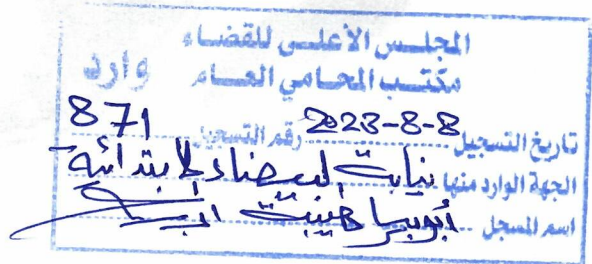 المجلس الأعلى للقضاء
مكتب المحامي العام وارد
تاريخ التسجيل 2023-8-8 رقم التسجيل 871
الجهة الوارد منها نيابة البيضاء الابتدائية
اسم المسجل أبوبكر